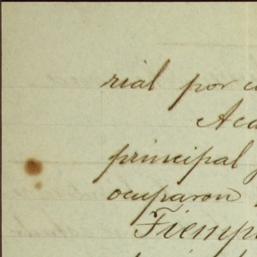 rial por
Aca
principal
ocuparon
Tiemp